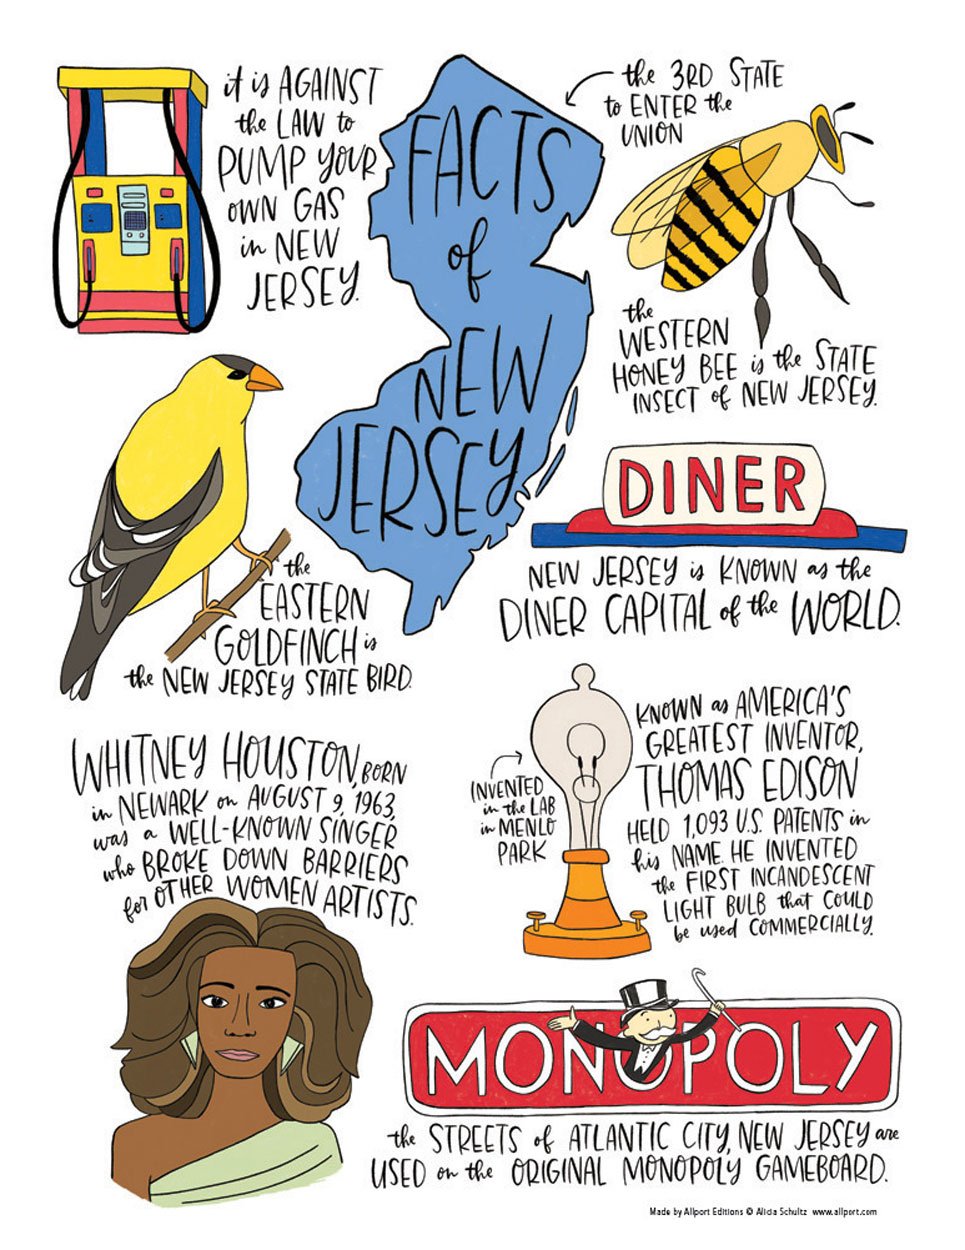 it is AGAINST
the LAW to
PUMP YOUR
OWN GAS
in NEW
JERSEY.
FACTS
of
NEW
JERSEY
the 3RD STATE
to ENTER the
UNION
the
WESTERN
HONEY BEE is the STATE
INSECT of NEW JERSEY.
the
EASTERN
GOLDFINCH is
the NEW JERSEY STATE BIRD.
DINER
NEW JERSEY is KNOWN as the
DINER CAPITAL of the WORLD.
WHITNEY HOUSTON, BORN
in NEWARK on AUGUST 9, 1963,
was a WELL-KNOWN SINGER
who BROKE DOWN BARRIERS
for OTHER WOMEN ARTISTS.
INVENTED
in the LAB
in MENLO
PARK
KNOWN as AMERICA'S
GREATEST INVENTOR,
THOMAS EDISON
HELD 1,093 U.S. PATENTS in
his NAME. HE INVENTED
the FIRST INCANDESCENT
LIGHT BULB that COULD
be used COMMERCIALLY.
MONOPOLY
the STREETS of ATLANTIC CITY, NEW JERSEY are
USED on the ORIGINAL MONOPOLY GAMEBOARD.
Made by Allport Editions © Alicia Schultz www.allport.com